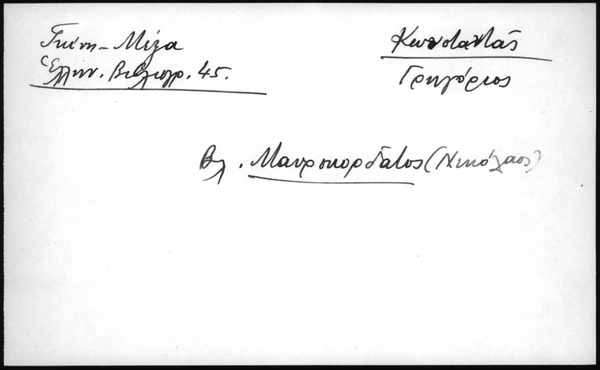 Γκίνη - Μέξα
Ἑλλην. Βιβλιογρ. 45.
Κωνσταντάς
Γρηγόριος
Βλ. Μαυροκορδάτος (Νικόλαος)